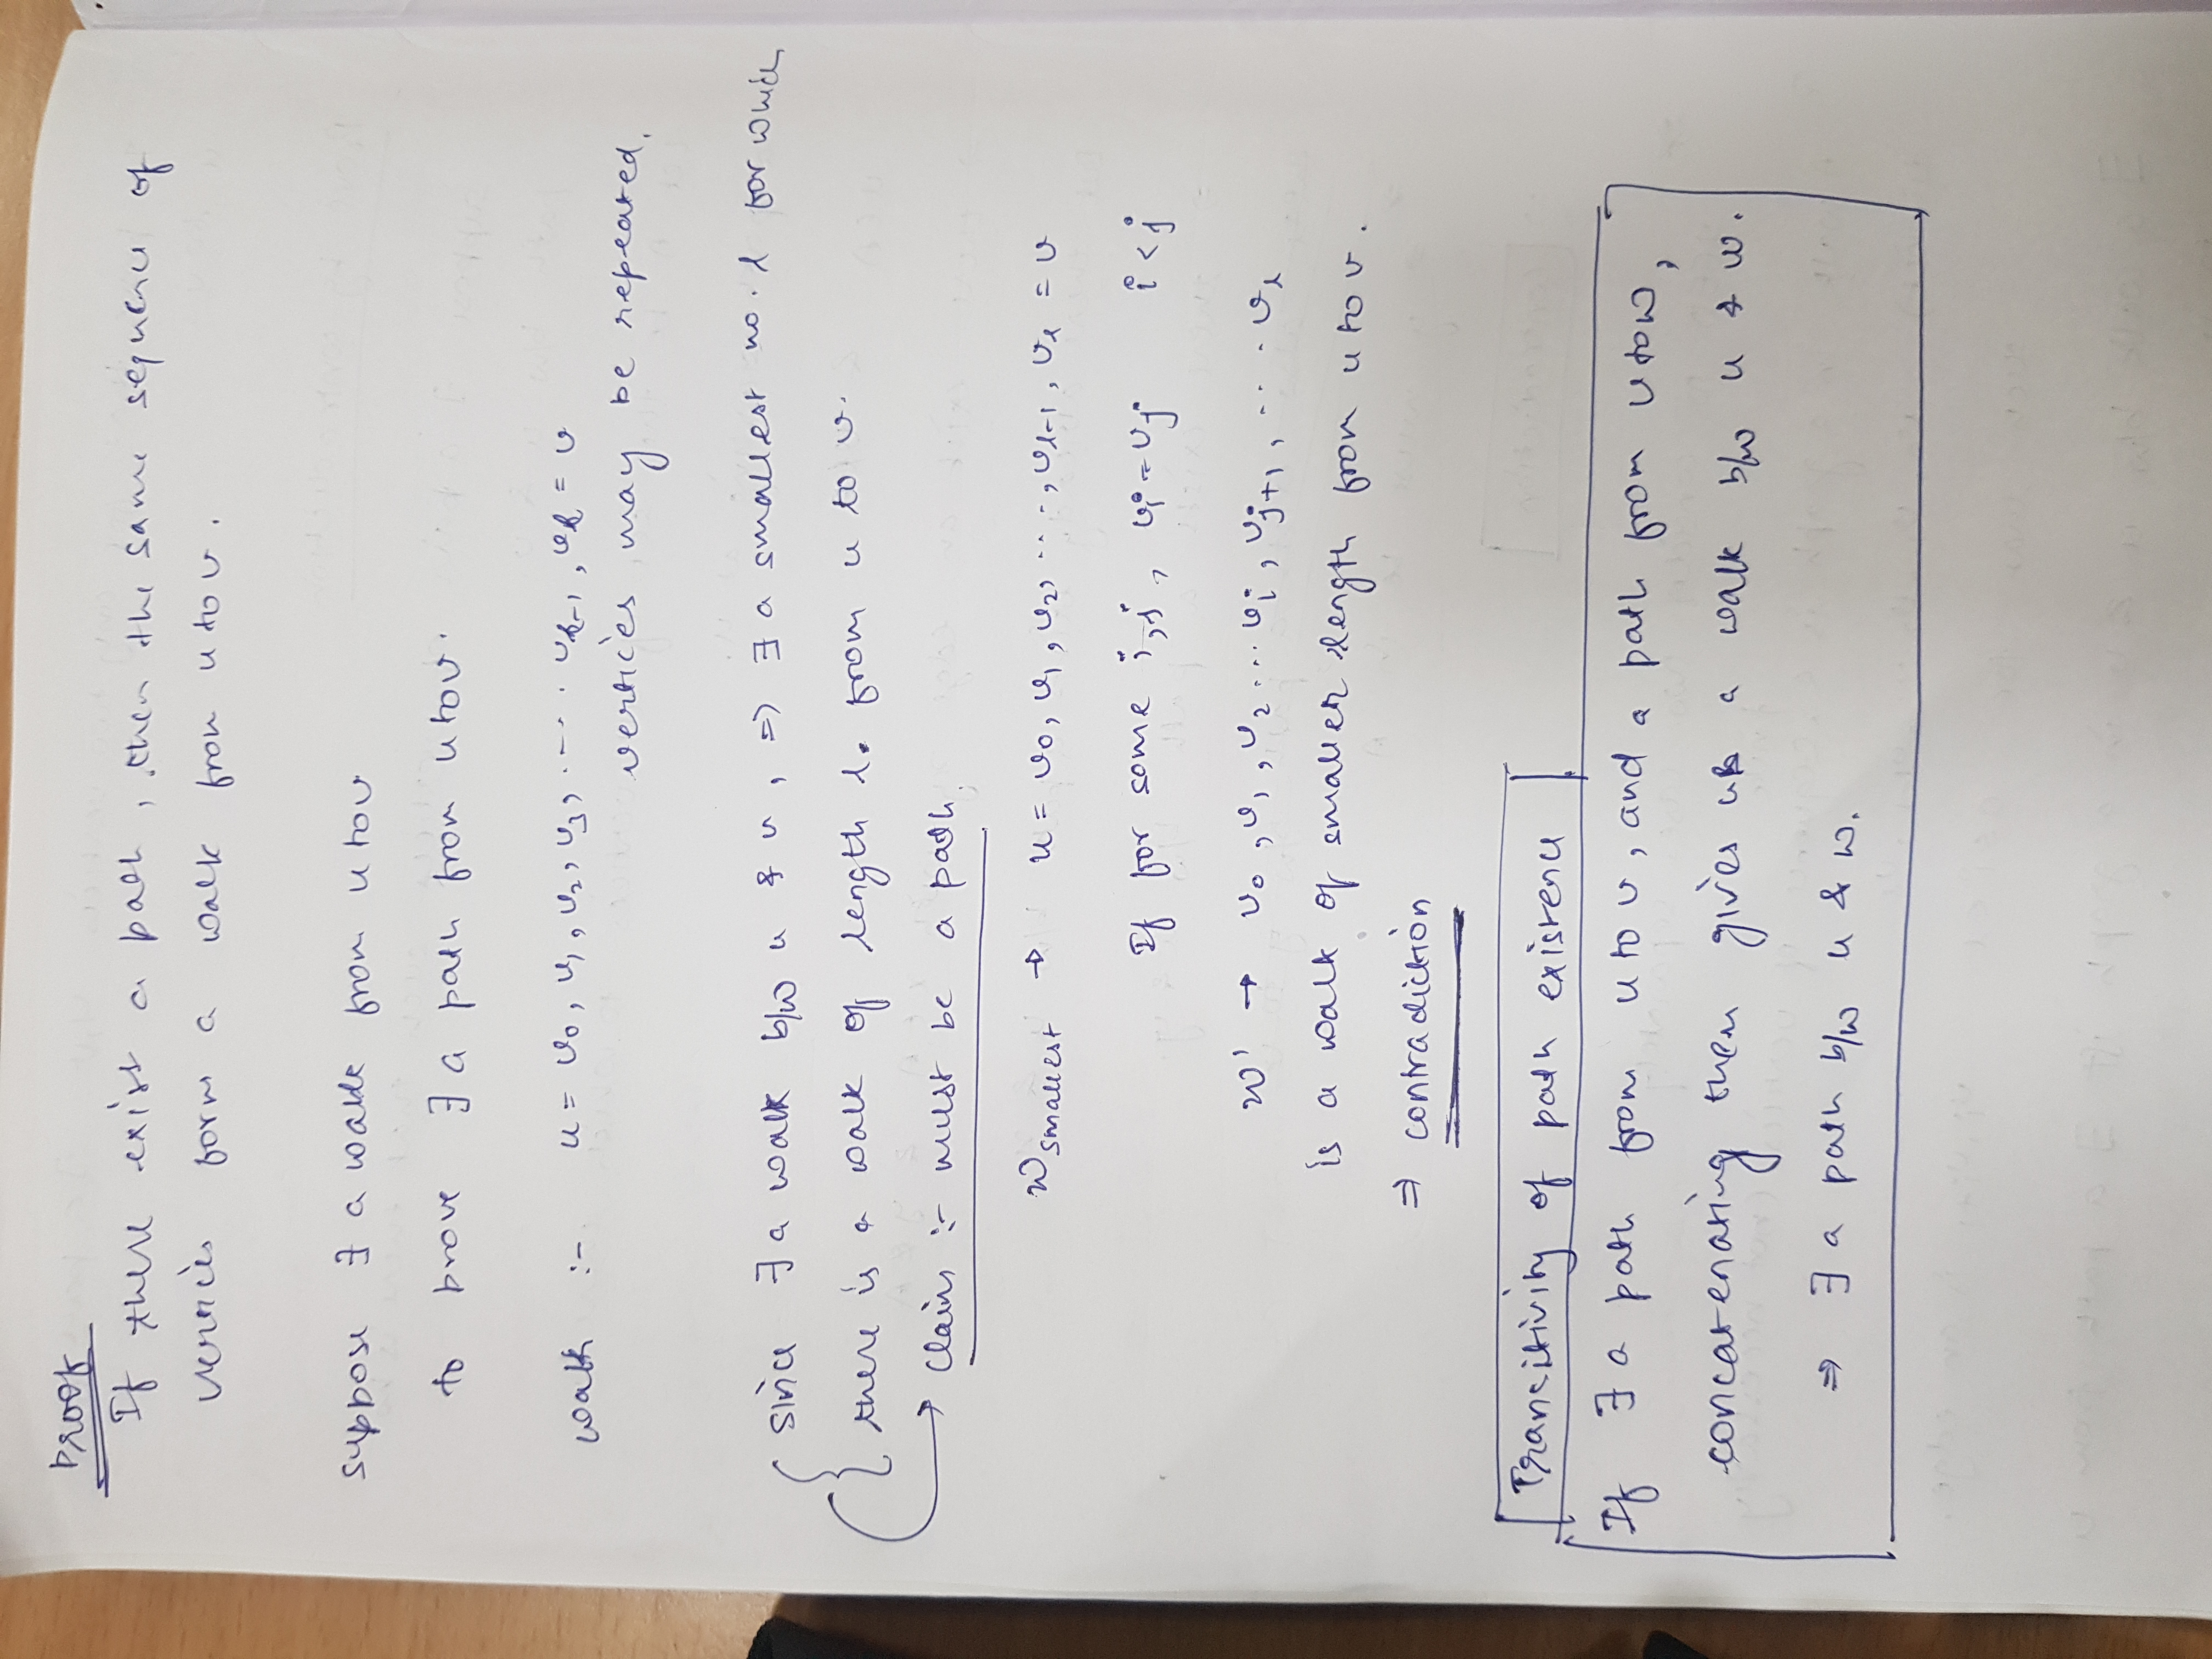 Proof
If there exist a path, then the same sequence of
vertices form a walk from u to v.
suppose ∃ a walk from u to v
to prove ∃ a path from u to v.
walk :- u = v₀, v₁, v₂, v₃, ..... vₖ₋₁, vₖ = v
vertices may be repeated.
since ∃ a walk b/w u & v, => ∃ a smallest no. l for which
there is a walk of length l. from u to v.
Claim :- must be a path.
W smallest → u = v₀, v₁, v₂, ...., vₗ₋₁, vₗ = v
If for some i,j, vᵢ = vⱼ i < j
W' → v₀, v₁, v₂ ... vᵢ, vⱼ₊₁, .... vₗ
is a walk of smaller length from u to v.
⇒ contradiction
Transitivity of path existence
If ∃ a path from u to v, and a path from v to w,
concatenating them gives us a walk b/w u & w.
⇒ ∃ a path b/w u & w.